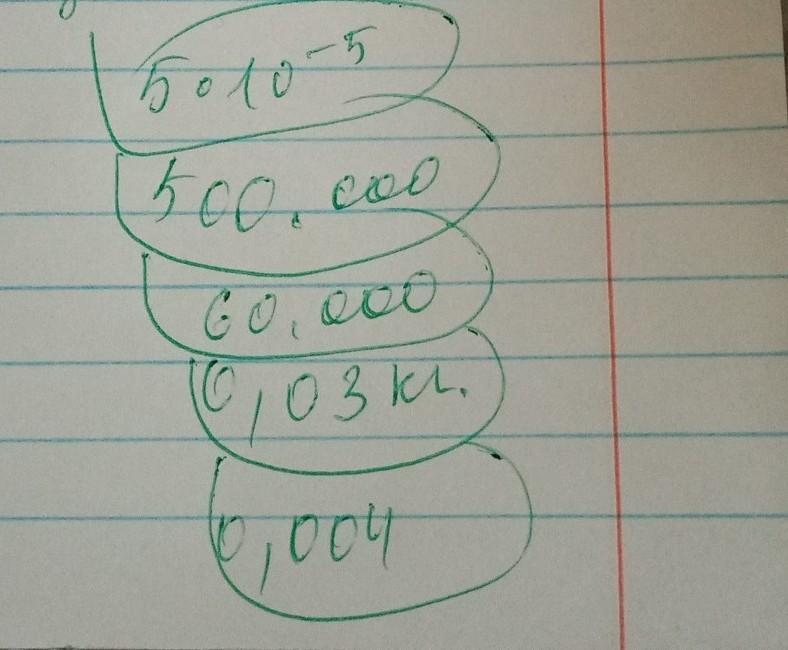 5·10⁻⁵
500.000
60.000
0,03 кг.
0,004